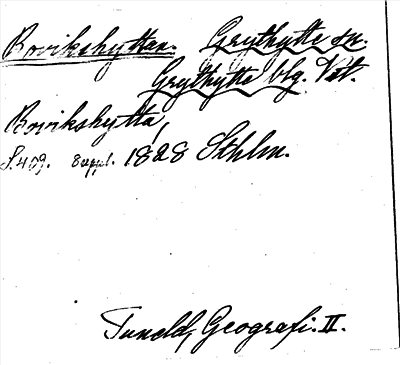 Bovikshyttan. Grythytte sn.
Grythytte blg. Vstl.
Bovikshytta,
S. 409. Suppl. 1828 Sthlm.
Tuneld, Geografi. II.